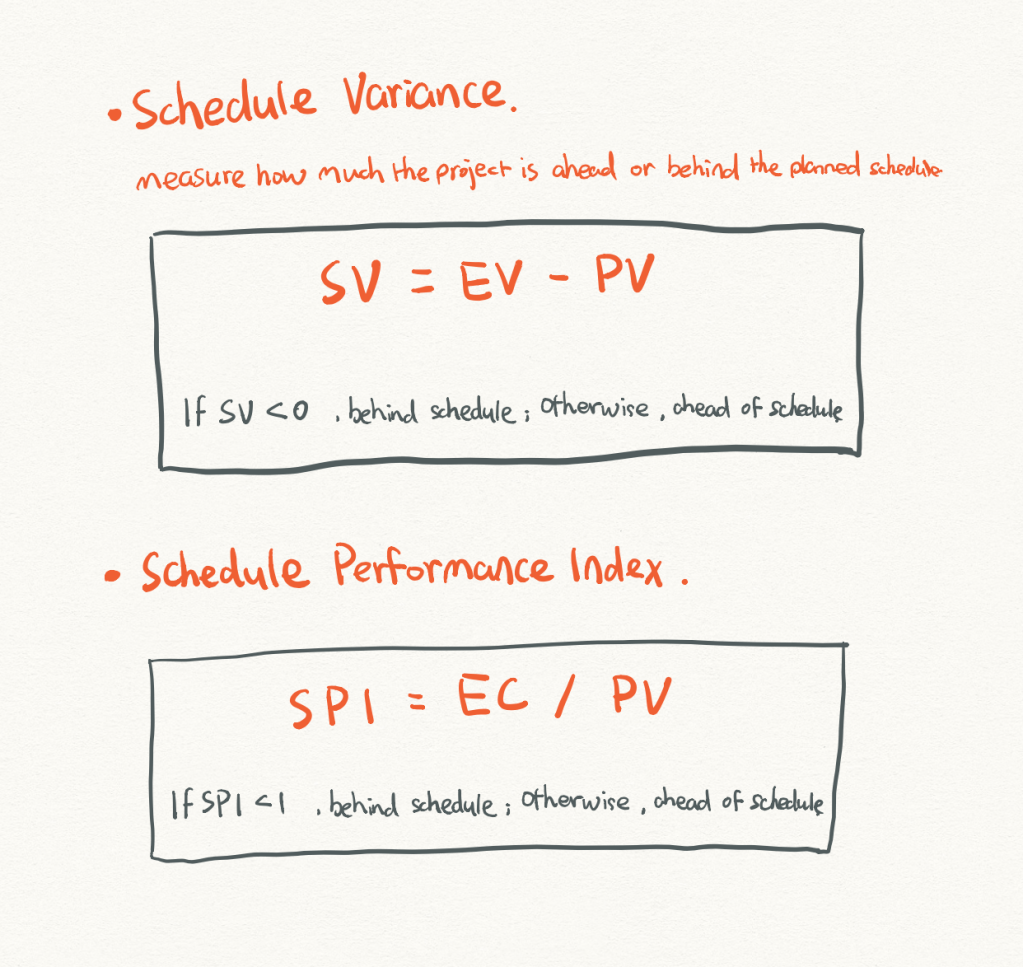 • Schedule Variance.
measure how much the project is ahead or behind the planned schedule
SV = EV - PV
If SV < 0 , behind schedule ; Otherwise , ahead of schedule
• Schedule Performance Index .
SPI = EC / PV
If SPI < 1 , behind schedule ; Otherwise , ahead of schedule